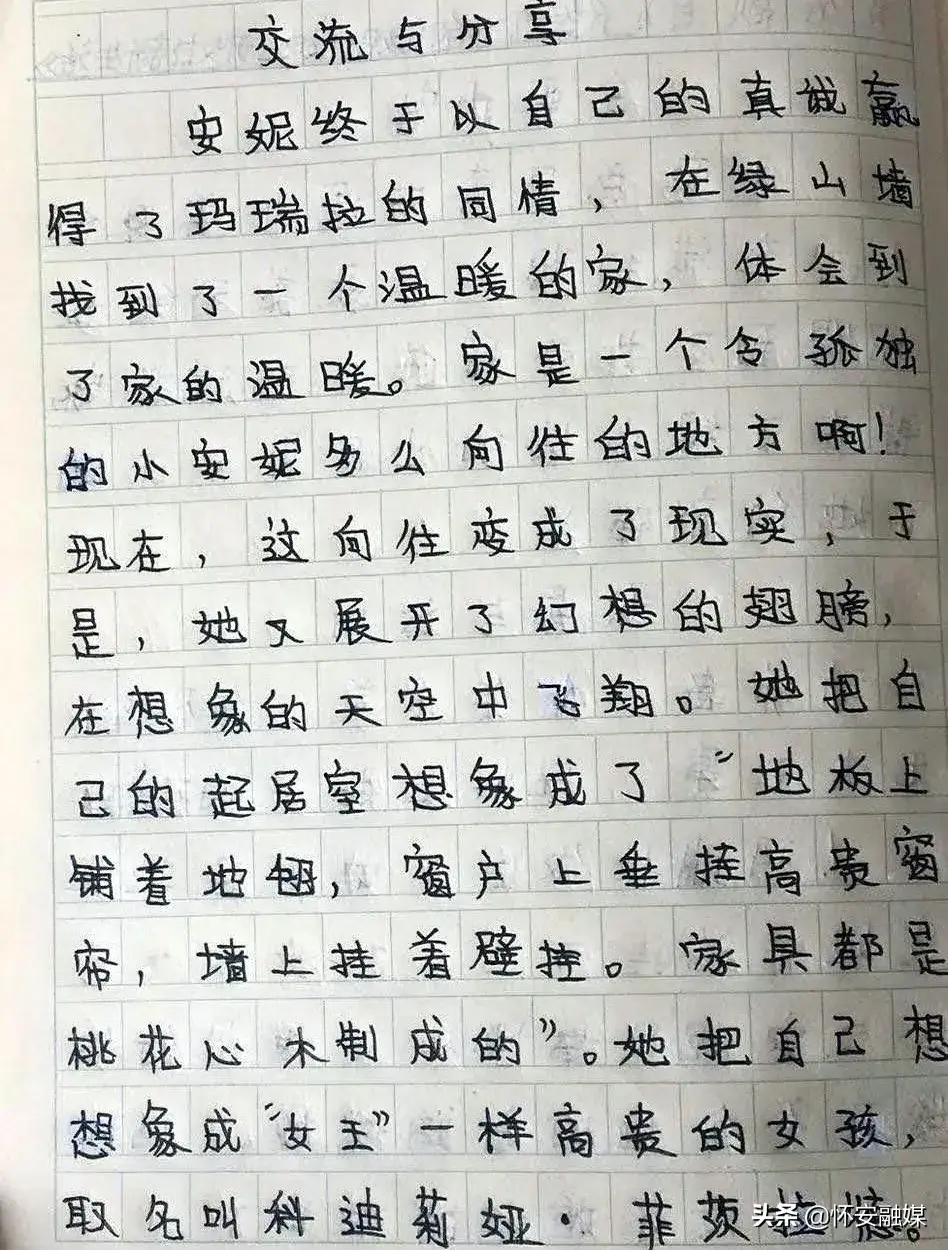 交流与分享
安妮终于以自己的真诚赢
得了玛瑞拉的同情，在绿山墙
找到了一个温暖的家，体会到
了家的温暖。家是一个令孤独
的小安妮多么向往的地方啊！
现在，这向往变成了现实，于
是，她又展开了幻想的翅膀，
在想象的天空中飞翔。她把自
己的起居室想象成了“地板上
铺着地毯，窗户上垂挂高贵窗
帘，墙上挂着壁挂。家具都是
桃花心木制成的”。她把自己想
想象成“女王”一样高贵的女孩，
取名叫科迪莉娅·菲茨拉德。
头条 @怀安融媒